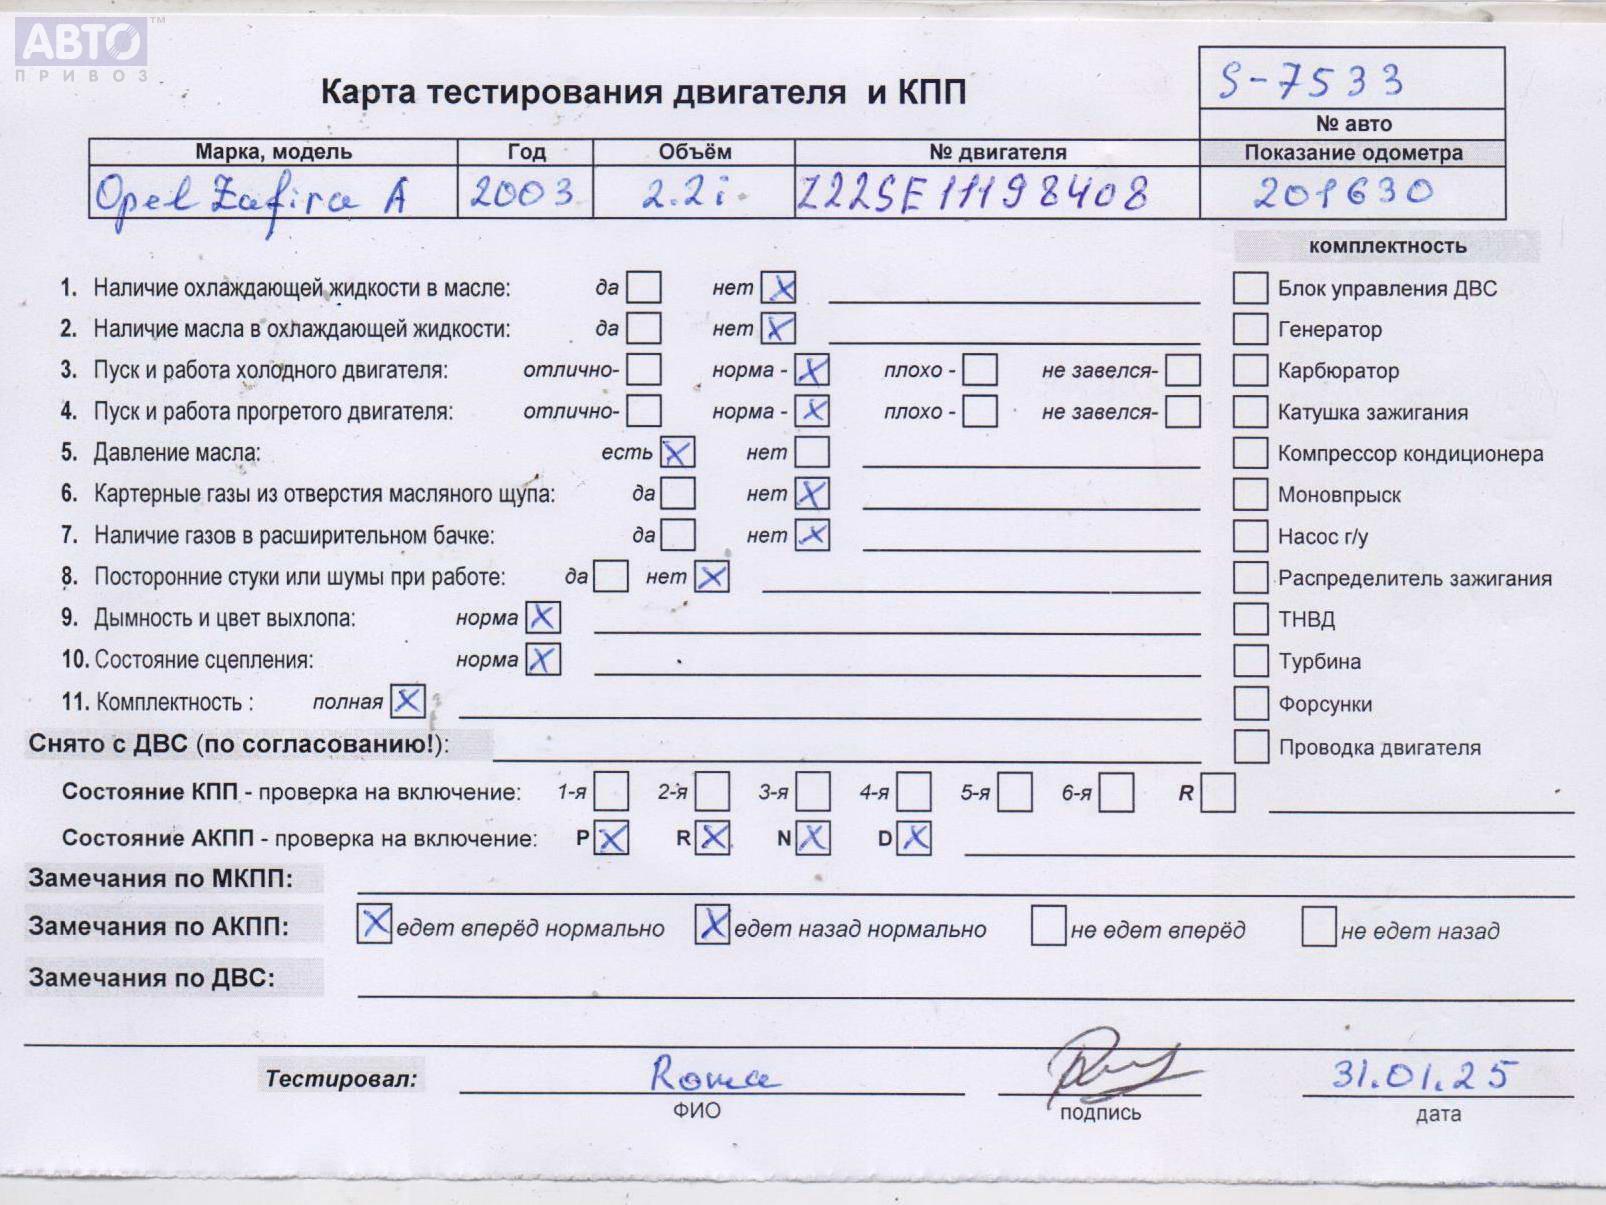 АВТО™
ПРИВОЗ
S-7533
Карта тестирования двигателя и КПП
№ авто
Марка, модель Год Объём № двигателя Показание одометра
Opel Zafira A 2003 2.2i Z22SE11198408 201630
комплектность
1. Наличие охлаждающей жидкости в масле: да нет X Блок управления ДВС
2. Наличие масла в охлаждающей жидкости: да нет X Генератор
3. Пуск и работа холодного двигателя: отлично- норма - X плохо - не завелся- Карбюратор
4. Пуск и работа прогретого двигателя: отлично- норма - X плохо - не завелся- Катушка зажигания
5. Давление масла: есть X нет Компрессор кондиционера
6. Картерные газы из отверстия масляного щупа: да нет X Моновпрыск
7. Наличие газов в расширительном бачке: да нет X Насос г/у
8. Посторонние стуки или шумы при работе: да нет X Распределитель зажигания
9. Дымность и цвет выхлопа: норма X ТНВД
10. Состояние сцепления: норма X Турбина
11. Комплектность : полная X Форсунки
Снято с ДВС (по согласованию!): Проводка двигателя
Состояние КПП - проверка на включение: 1-я 2-я 3-я 4-я 5-я 6-я R
Состояние АКПП - проверка на включение: P X R X N X D X
Замечания по МКПП:
Замечания по АКПП: X едет вперёд нормально X едет назад нормально не едет вперёд не едет назад
Замечания по ДВС:
Тестировал: Roma 31.01.25
ФИО подпись дата